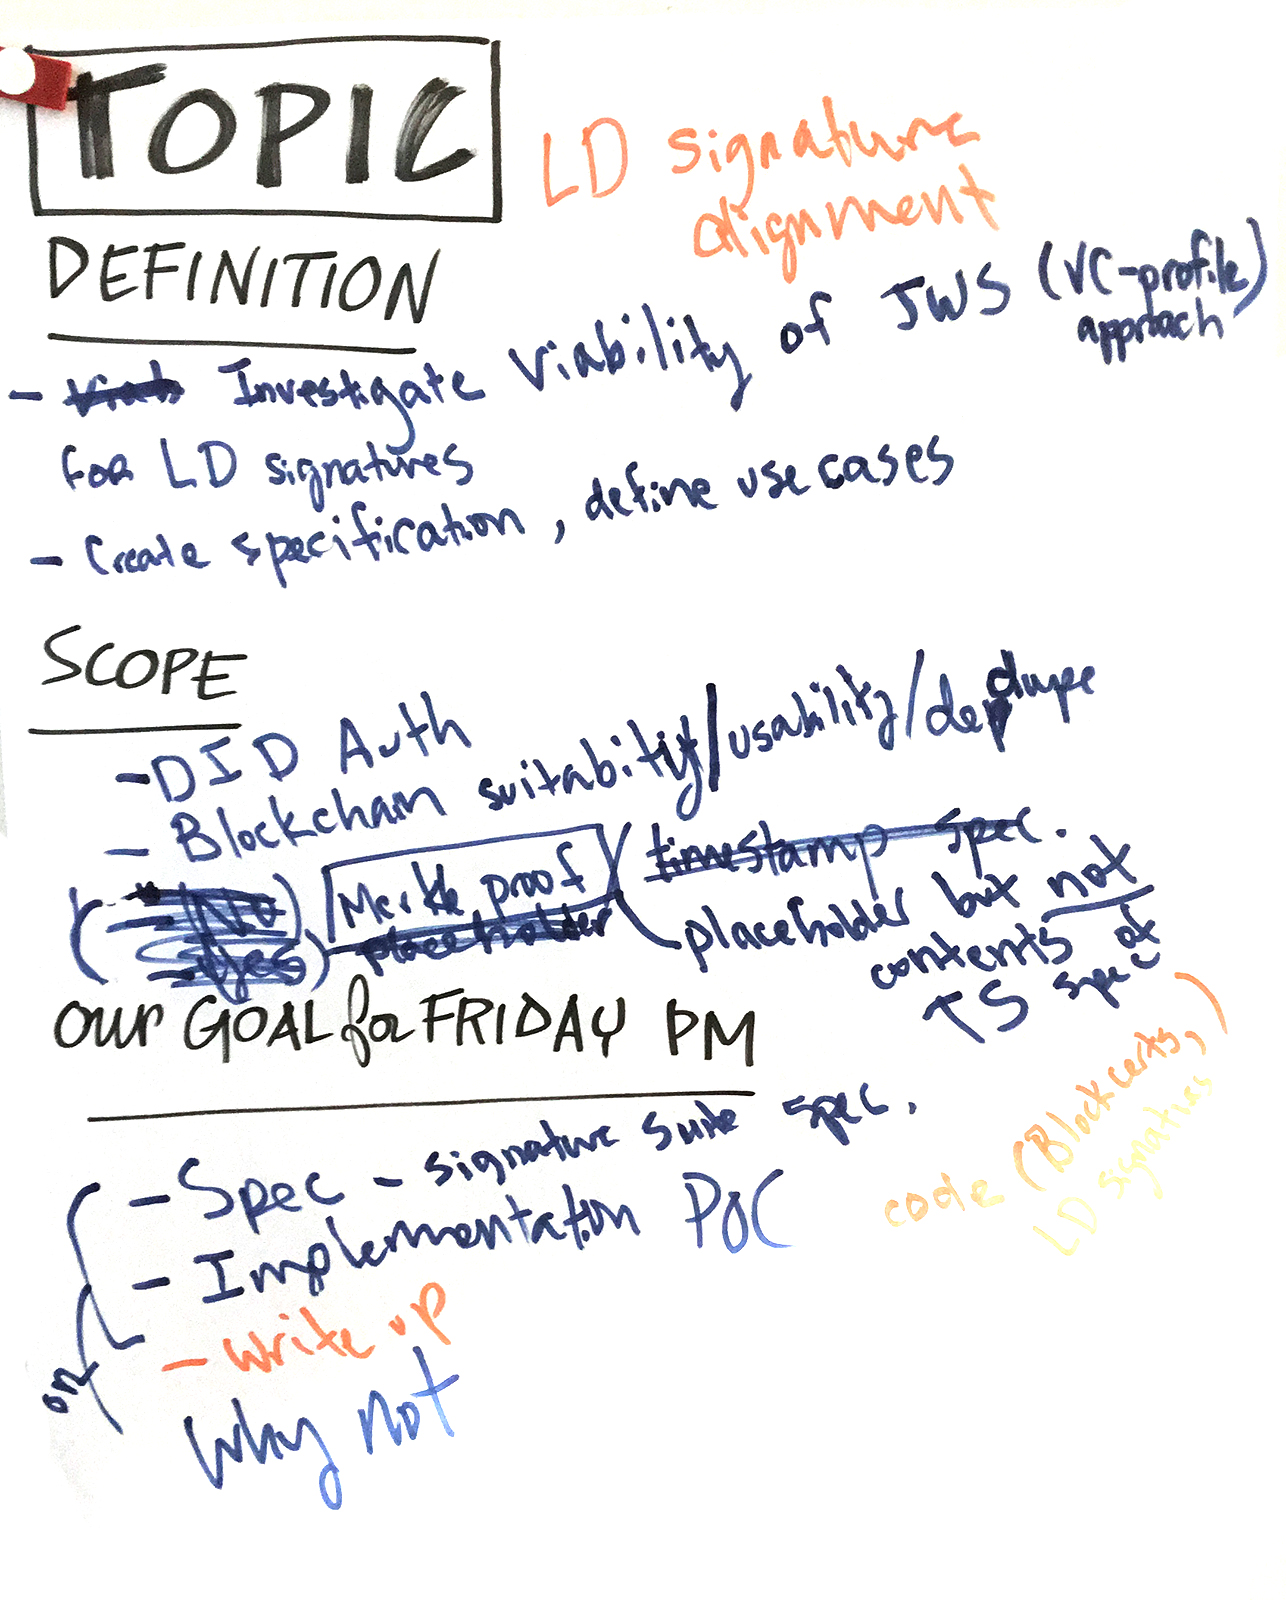 TOPIC
LD signature
alignment
DEFINITION
- Investigate viability of JWS (VC-profile
approach)
for LD signatures
- Create specification, define use cases
SCOPE
- DID Auth
- Blockchain suitability/usability/
Merkle proof
timestamp spec.
placeholder
placeholder but not
contents of
TS spec
our GOAL for FRIDAY PM
- Spec - signature suite spec.
- Implementation PoC
code (Blockcerts,
LD signatures)
- write up
why not